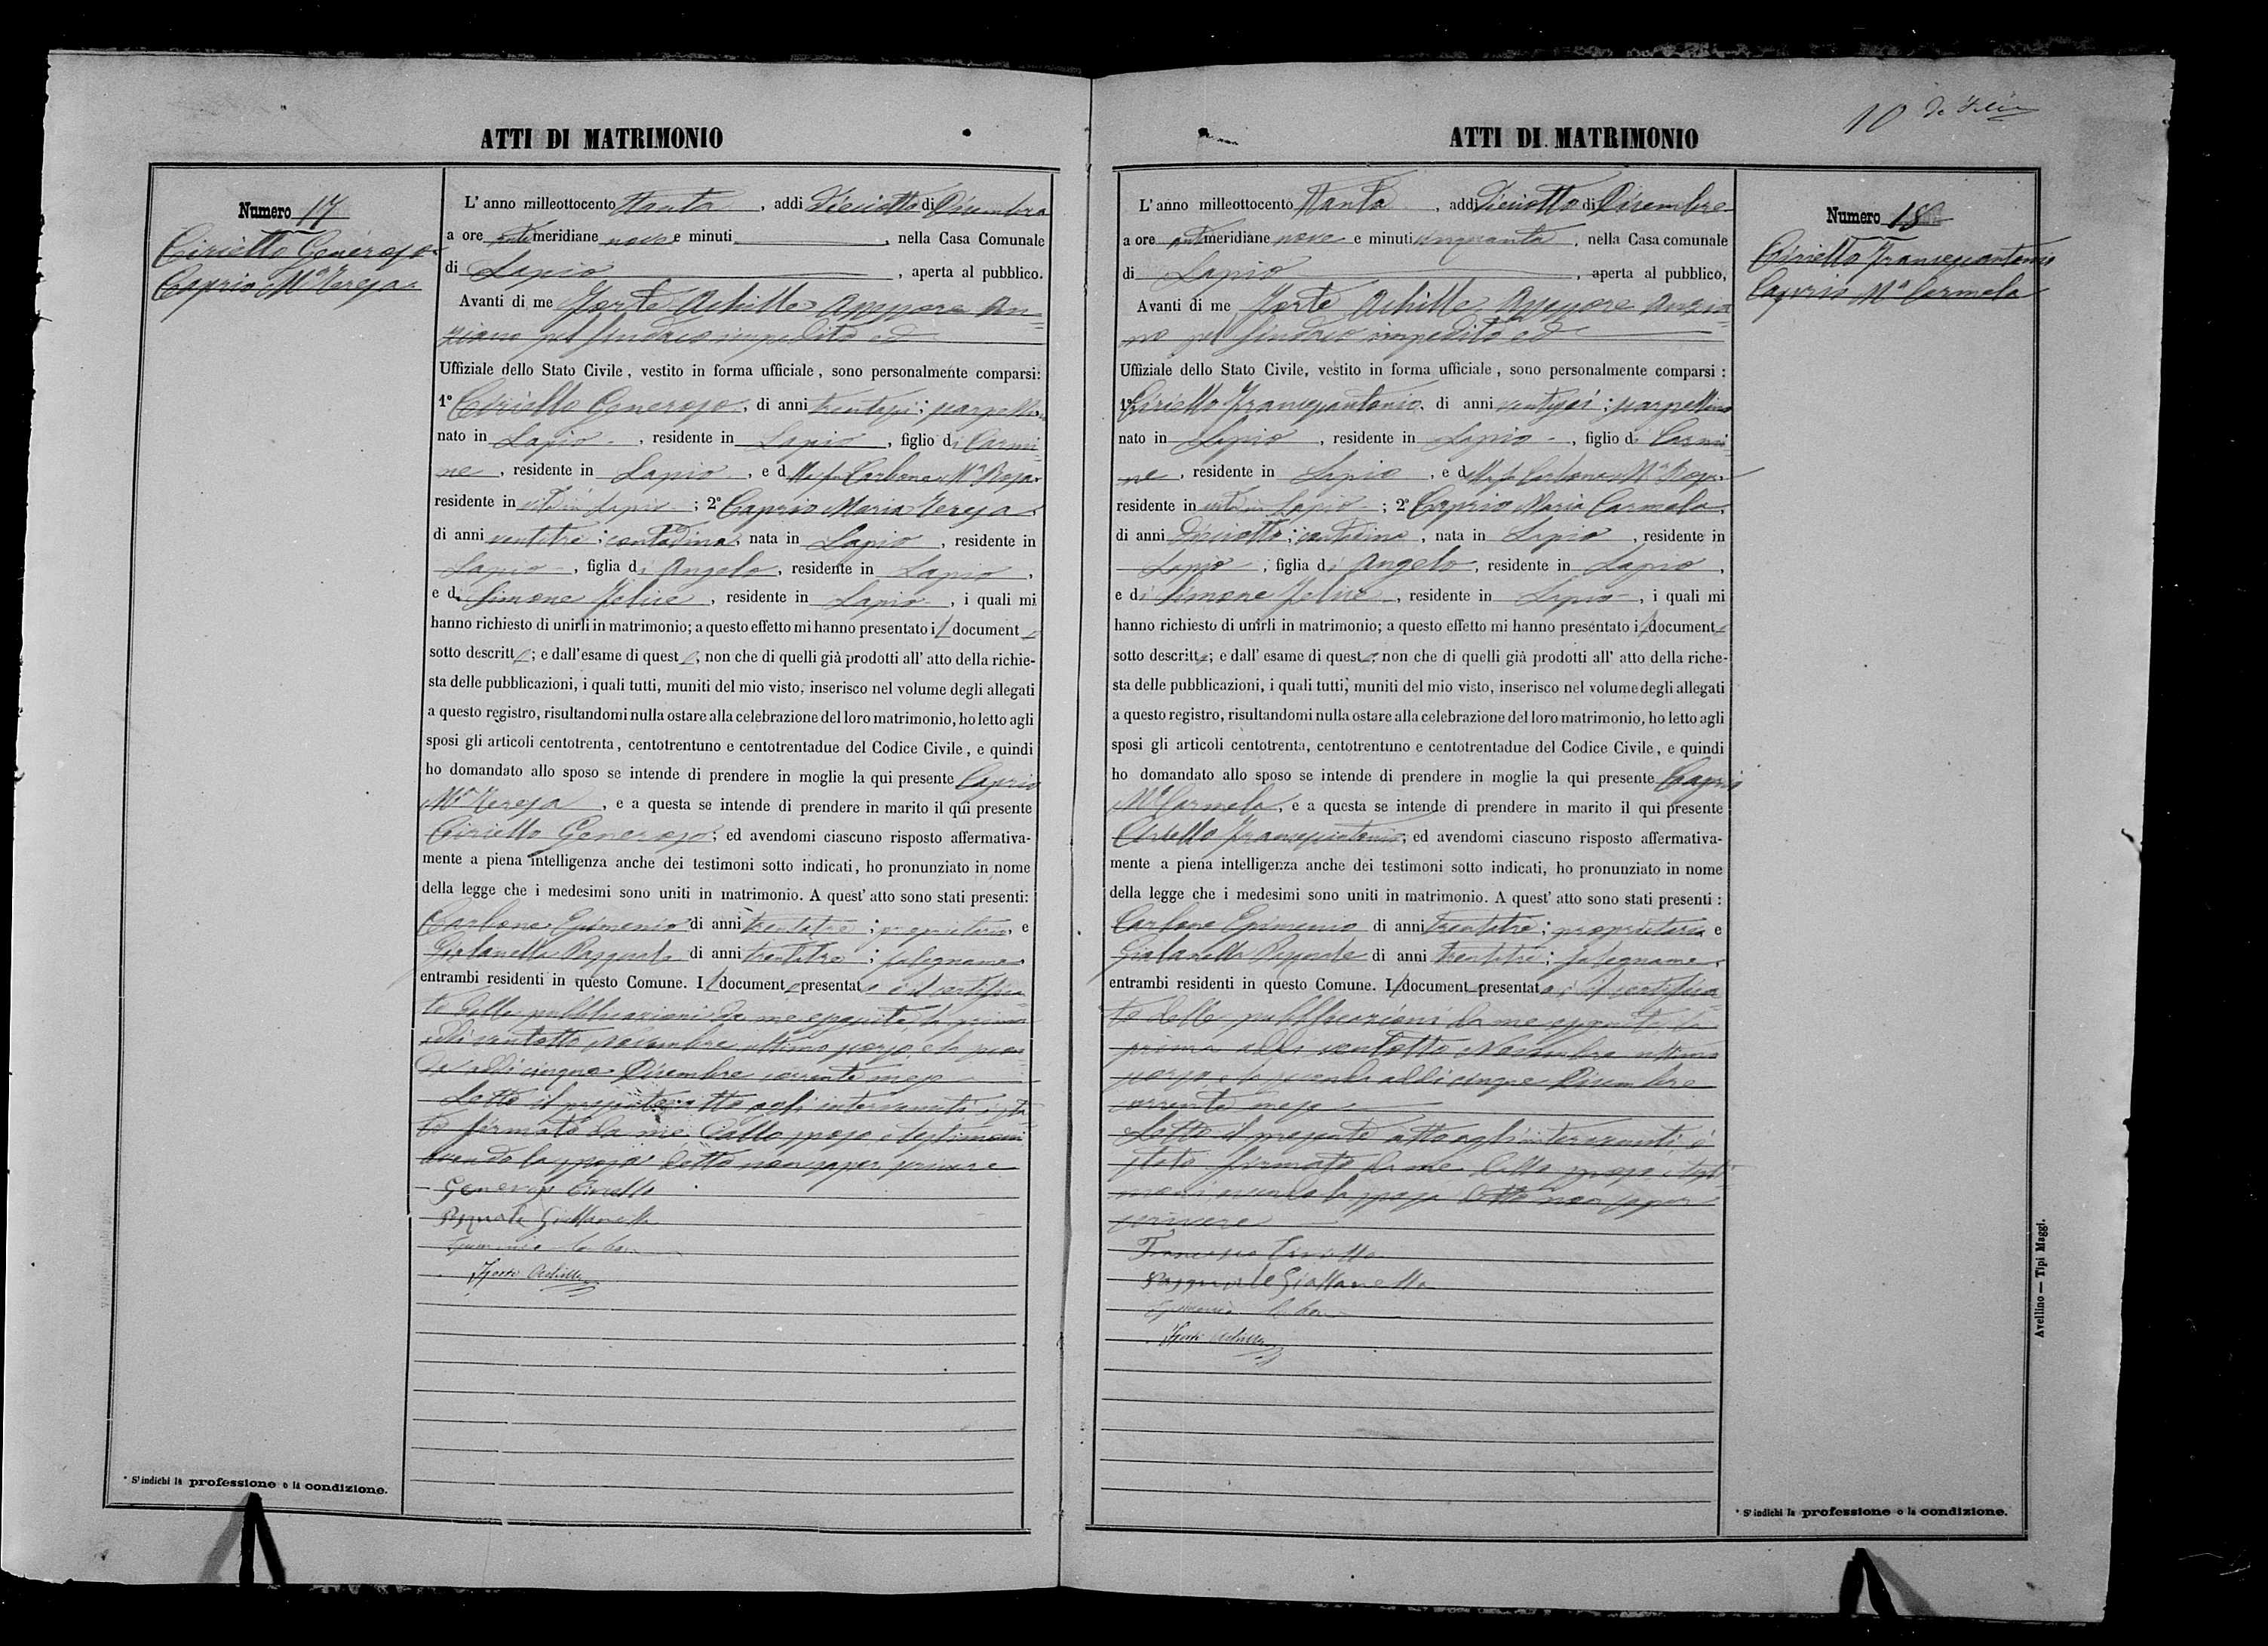 ATTI DI MATRIMONIO
Numero 17
Ciriello Generoso
Caprio Mª Teresa
L' anno milleottocento ttanta, addi Dieciotto di Dicembre
a ore antimeridiane nove e minuti , nella Casa Comunale
di Lapio , aperta al pubblico.
Avanti di me Forte Achille Assessore An=
ziano pel Sindaco impedito ed
Uffiziale dello Stato Civile, vestito in forma ufficiale, sono personalmente comparsi:
1º Ciriello Generoso, di anni trentasei; scarpellino
nato in Lapio, residente in Lapio, figlio di Carmi=
ne, residente in Lapio, e della fu Carbone Mª Rosa
residente in vita in Lapio; 2º Caprio Maria Teresa,
di anni ventitre; contadina, nata in Lapio, residente in
Lapio, figlia di Angelo, residente in Lapio,
e di Simone Felice, residente in Lapio, i quali mi
hanno richiesto di unirli in matrimonio; a questo effetto mi hanno presentato il documento
sotto descritto; e dall'esame di questo, non che di quelli già prodotti all' atto della richie-
sta delle pubblicazioni, i quali tutti, muniti del mio visto, inserisco nel volume degli allegati
a questo registro, risultandomi nulla ostare alla celebrazione del loro matrimonio, ho letto agli
sposi gli articoli centotrenta, centotrentuno e centotrentadue del Codice Civile, e quindi
ho domandato allo sposo se intende di prendere in moglie la qui presente Caprio
Mª Teresa, e a questa se intende di prendere in marito il qui presente
Ciriello Generoso; ed avendomi ciascuno risposto affermativa-
mente a piena intelligenza anche dei testimoni sotto indicati, ho pronunziato in nome
della legge che i medesimi sono uniti in matrimonio. A quest' atto sono stati presenti:
Carbone Epimenio di anni trentatre; proprietario, e
Giallanella Pasquale di anni trentatre; falegname
entrambi residenti in questo Comune. Il documento presentato è il certifica=
to delle pubblicazioni da me eseguite, la prima
addi ventotto Novembre ultimo scorso, e la secon
da addi cinque Dicembre corrente mese
Letto il presente atto agli intervenuti, è sta=
to firmato da me, dallo sposo e testimoni
avendo la sposa detto non saper scrivere
Generoso Ciriello
Pasquale Giallanella
Epimenio Carbone
Forte Achille
* S'indichi la professione o la condizione.
10 
ATTI DI MATRIMONIO
Numero 18
Ciriello Francescantonio
Caprio Mª Carmela
L' anno milleottocento ttanta, addi Dieciotto di Dicembre
a ore antimeridiane nove e minuti cinquanta, nella Casa comunale
di Lapio , aperta al pubblico,
Avanti di me Forte Achille Assessore Anzia=
no pel Sindaco impedito ed
Uffiziale dello Stato Civile, vestito in forma ufficiale, sono personalmente comparsi:
1º Ciriello Francescantonio, di anni ventisei; scarpellino
nato in Lapio, residente in Lapio, figlio di Carmi=
ne, residente in Lapio, e della fu Carbone Mª Rosa
residente in vita in Lapio; 2º Caprio Maria Carmela,
di anni Dieciotto; contadina, nata in Lapio, residente in
Lapio, figlia di Angelo, residente in Lapio,
e di Simone Felice, residente in Lapio, i quali mi
hanno richiesto di unirli in matrimonio; a questo effetto mi hanno presentato il documento
sotto descritto; e dall' esame di questo, non che di quelli già prodotti all' atto della riche-
sta delle pubblicazioni, i quali tutti, muniti del mio visto, inserisco nel volume degli allegati
a questo registro, risultandomi nulla ostare alla celebrazione del loro matrimonio, ho letto agli
sposi gli articoli centotrenta, centotrentuno e centotrentadue del Codice Civile, e quindi
ho domandato allo sposo se intende di prendere in moglie la qui presente Caprio
Mª Carmela, e a questa se intende di prendere in marito il qui presente
Ciriello Francescantonio; ed avendomi ciascuno risposto affermativa-
mente a piena intelligenza anche dei testimoni sotto indicati, ho pronunziato in nome
della legge che i medesimi sono uniti in matrimonio. A quest' atto sono stati presenti:
Carbone Epimenio di anni trentatre; proprietario e
Giallanella Pasquale di anni trentatre; falegname,
entrambi residenti in questo Comune. Il documento presentato è il certifica=
to delle pubblicazioni da me eseguite, la
prima addi ventotto Novembre ultimo
scorso, e la seconda addi cinque Dicembre
corrente mese
Letto il presente atto agli intervenuti, è
stato firmato da me dallo sposo e testi=
moni avendo la sposa detto non saper
scrivere
Francesco Ciriello
Pasquale Giallanella
Epimenio Carbone
Forte Achille
Avellino — Tipi Maggi.
* S'indichi la professione o la condizione.